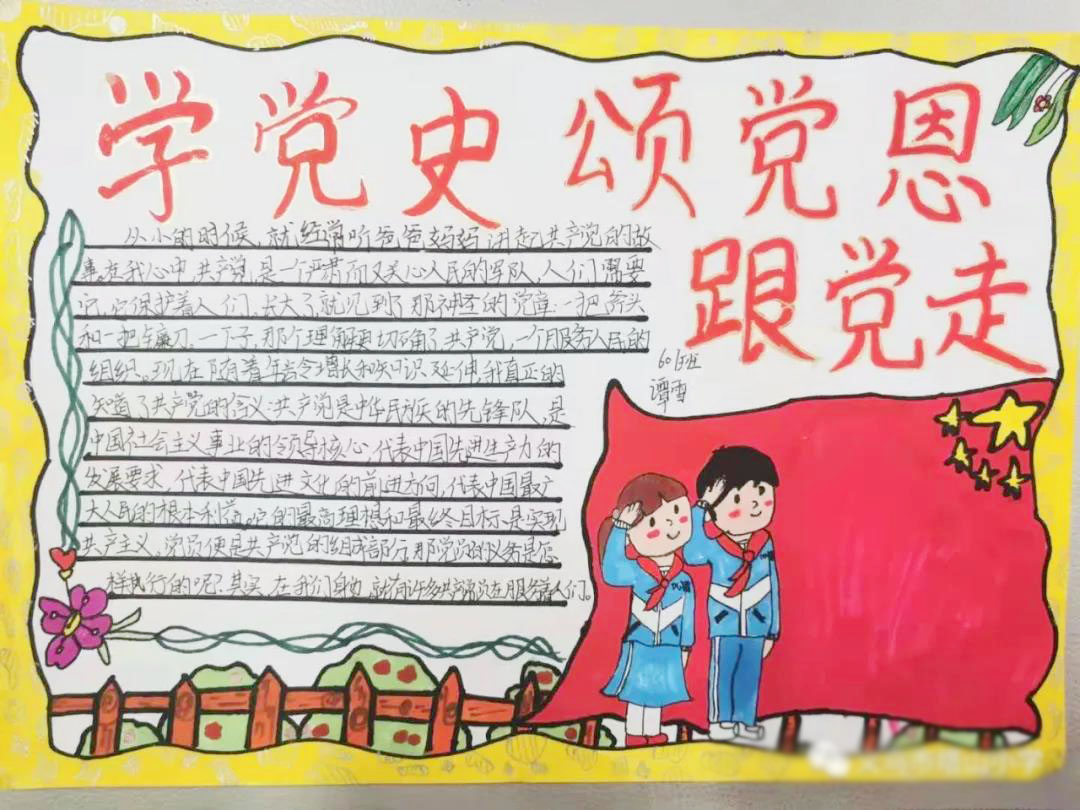 学党史 颂党恩
跟党走
从小的时候,就经常听爸爸妈妈讲起共产党的故
事。在我心中,共产党是一个严肃而又关心人民的军队,人们需要
它,它保护着人们。长大了,就见到了那神圣的党章:一把斧头
和一把镰刀。一下子,那个理解更切确了:共产党,一个服务人民的
组织。现在随着年龄增长和知识延伸,我真正的
知道了共产党的含义:共产党是中华民族的先锋队,是
中国社会主义事业的领导核心,代表中国先进生产力的
发展要求,代表中国先进文化的前进方向,代表中国最广
大人民的根本利益。它的最高理想和最终目标是实现
共产主义。党员便是共产党的组成部分,那党员的义务是怎
样执行的呢?其实,在我们身边,就有许多共产党员在服务着人们。
601班
谭雪